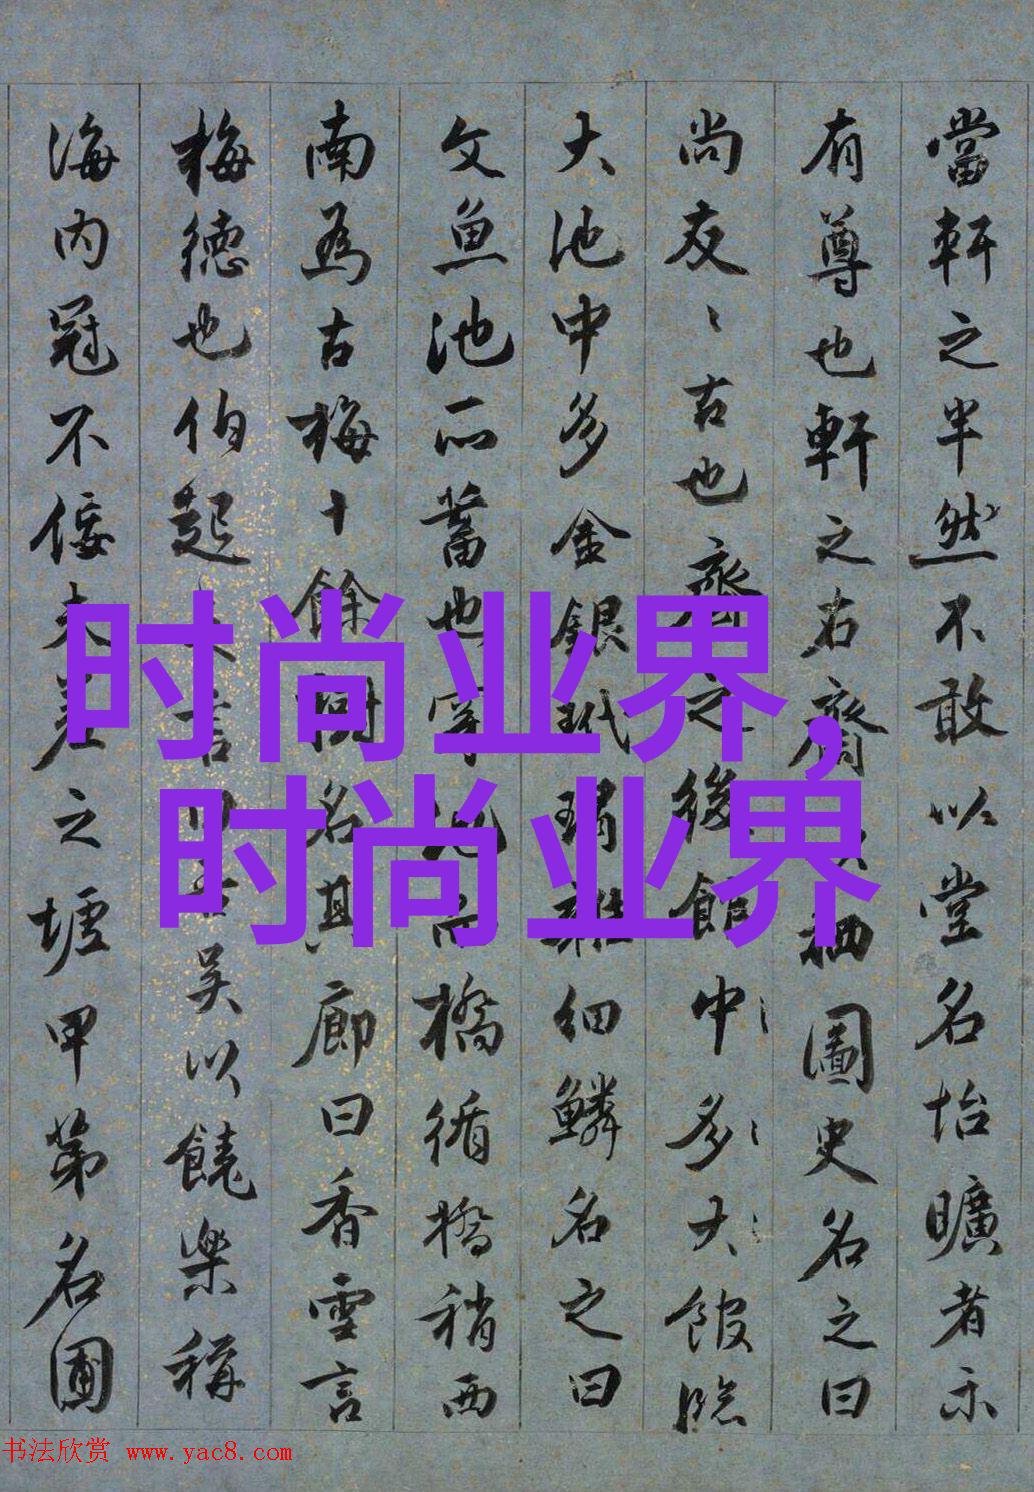 當軒之半然不敢以堂名怡曠者示
有尊也軒之右齋栖圖史名之曰
尚友〻古也齋之後館中多大館臨
大池中多金銀玳瑁雜細鱗名之曰
文魚池所蓄也穿池而橋循橋稍西
南為古梅十餘樹名其廊曰香雪言
梅德也伯起吳以饒樂稱
海内冠不佞夫差之塘甲第名圃
时尚业界,
时尚业界
书法欣赏 www.yac8.com